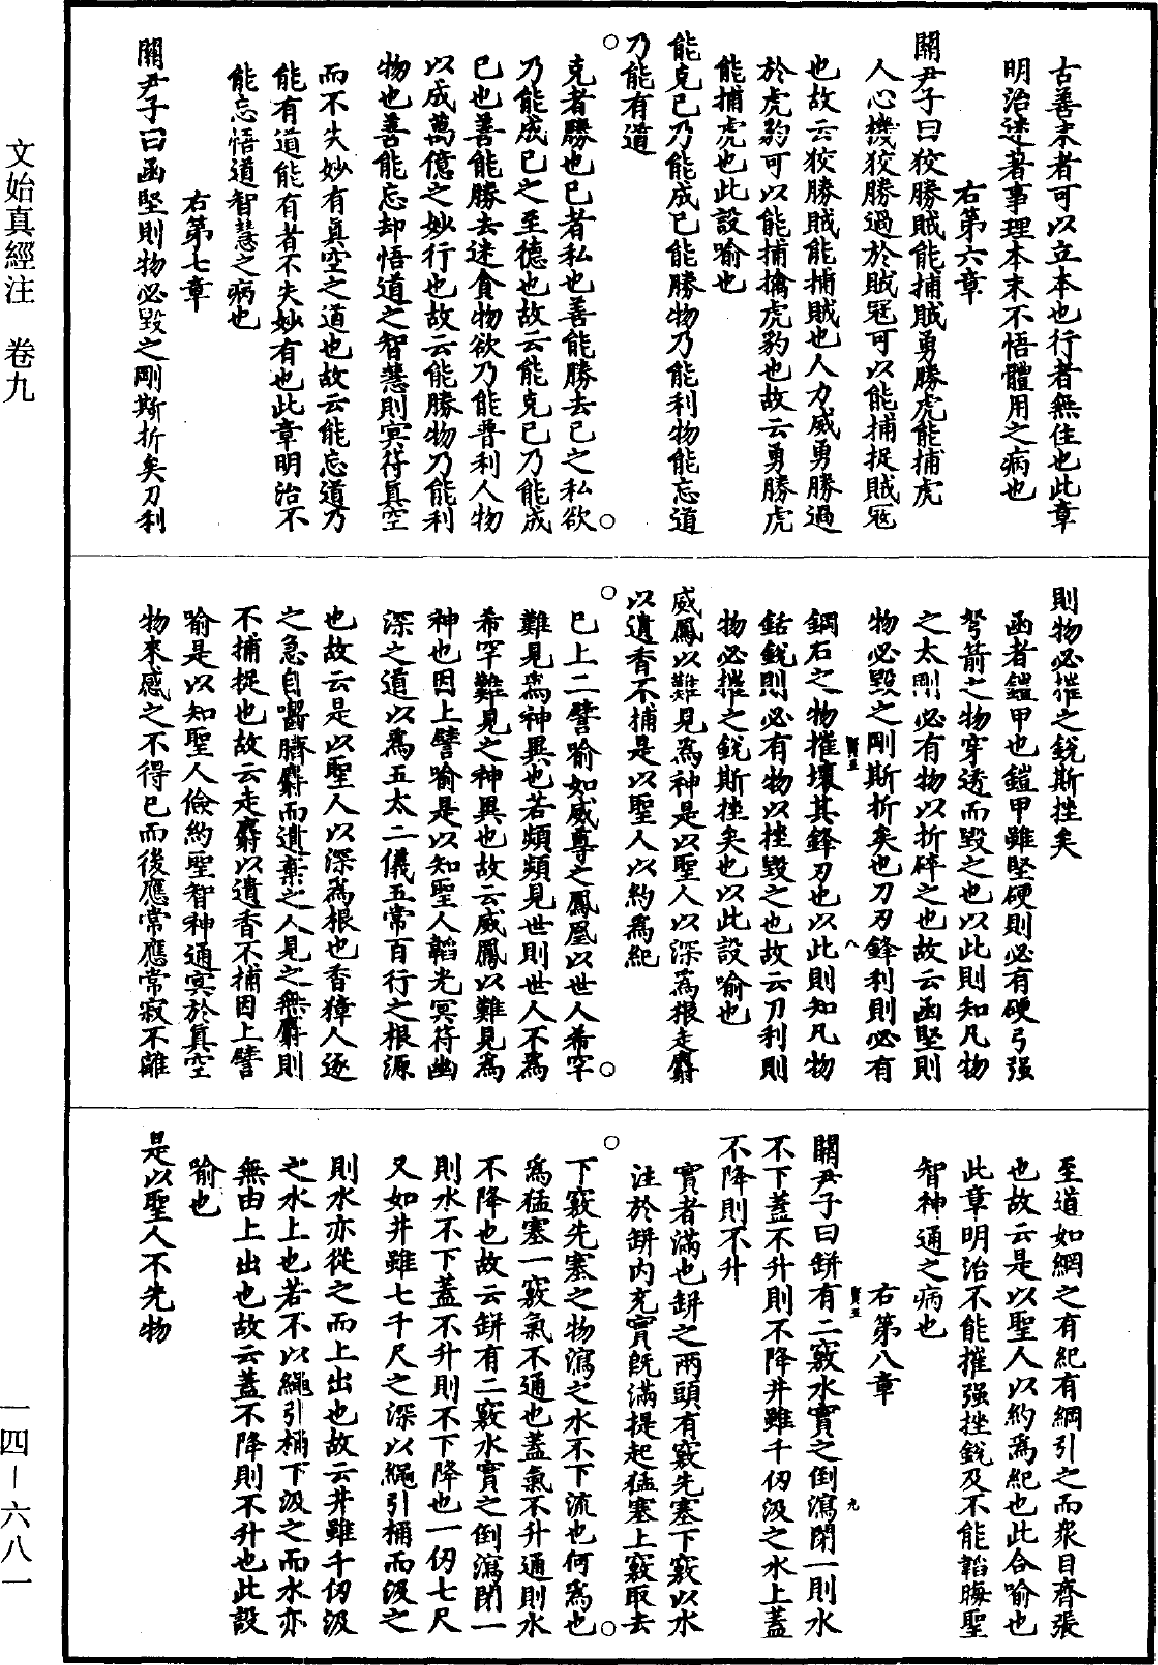 古善末者可以立本也行者無住也此章
明治迷著事理本末不悟體用之病也
右第六章
關尹子曰狡勝賊能捕賊勇勝虎能捕虎
人心機狡勝過於賊寇可以能捕捉賊寇
也故云狡勝賊能捕賊也人力威勇勝過
於虎豹可以能捕擒虎豹也故云勇勝虎
能捕虎也此設喻也
能克己乃能成己能勝物乃能利物能忘道
乃能有道
克者勝也己者私也善能勝去己之私欲
乃能成己之至德也故云能克己乃能成
己也善能勝去迷貪物欲乃能普利人物
以成萬億之妙行也故云能勝物乃能利
物也善能忘却悟道之智慧則冥符真空
而不失妙有真空之道也故云能忘道乃
能有道能有者不失妙有也此章明治不
能忘悟道智慧之病也
右第七章
關尹子曰函堅則物必毀之剛斯折矣刀利
則物必摧之銳斯挫矣
函者鎧甲也鎧甲雖堅硬則必有硬弓强
弩箭之物穿透而毀之也以此則知凡物
之太剛必有物以折碎之也故云函堅則
物必毀之剛斯折矣也刀刃鋒利則必有
鋼石之物摧壞其鋒刃也以此則知凡物
銛銳則必有物以挫毀之也故云刀利則
物必摧之銳斯挫矣也以此設喻也
威鳳以難見為神是以聖人以深為根走麝
以遺香不捕是以聖人以約為紀
已上二譬喻如威尊之鳳凰以世人希罕
難見為神異也若頻頻見世則世人不為
希罕難見之神異也故云威鳳以難見為
神也因上譬喻是以知聖人韜光冥符幽
深之道以為五太二儀五常百行之根源
也故云是以聖人以深為根也香獐人逐
之急自嚙臍麝而遺棄之人見之無麝則
不捕捉也故云走麝以遺香不捕因上譬
喻是以知聖人儉約聖智神通冥於真空
物來感之不得已而後應常應常寂不離
至道如綱之有紀有綱引之而衆目齊張
也故云是以聖人以約為紀也此合喻也
此章明治不能摧强挫銳及不能韜晦聖
智神通之病也
右第八章
關尹子曰缾有二竅水實之倒瀉閉一則水
不下蓋不升則不降井雖千仞汲之水上蓋
不降則不升
實者滿也缾之兩頭有竅先塞下竅以水
注於缾內充實既滿提起猛塞上竅取去
下竅先塞之物瀉之水不下流也何為也
為猛塞一竅氣不通也蓋氣不升通則水
不降也故云缾有二竅水實之倒瀉閉一
則水不下蓋不升則不下降也一仞七尺
又如井雖七千尺之深以繩引桶而汲之
則水亦從之而上出也故云井雖千仞汲
之水上也若不以繩引桶下汲之而水亦
無由上出也故云蓋不降則不升也此設
喻也
是以聖人不先物
文始真經注 卷九
一四－六八一